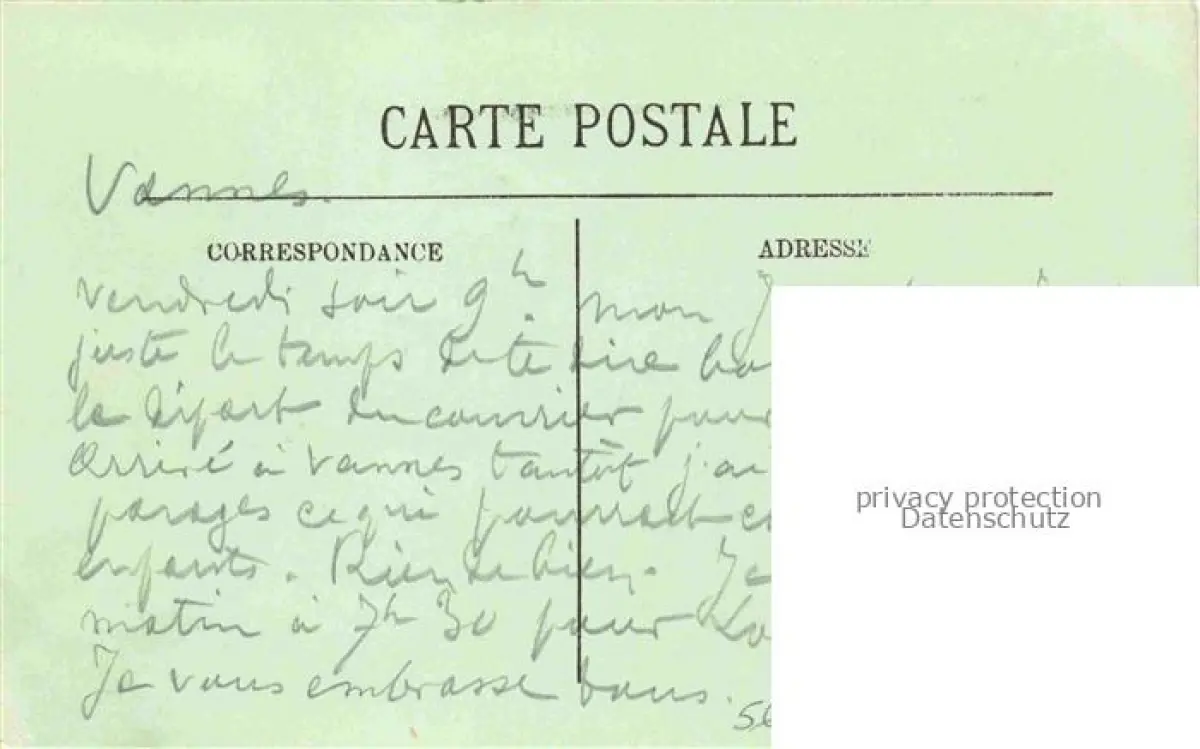 CARTE POSTALE
Vannes.
CORRESPONDANCE
ADRESSE
vendredi soir 9h. mon
juste le temps de te dire
le départ du courrier pour
Arrivé à Vannes tantôt j'ai
parages ce qui pourrait
enfants. Rien de bien. Je
matin à 7h 30 pour
Je vous embrasse tous.
privacy protection
Datenschutz